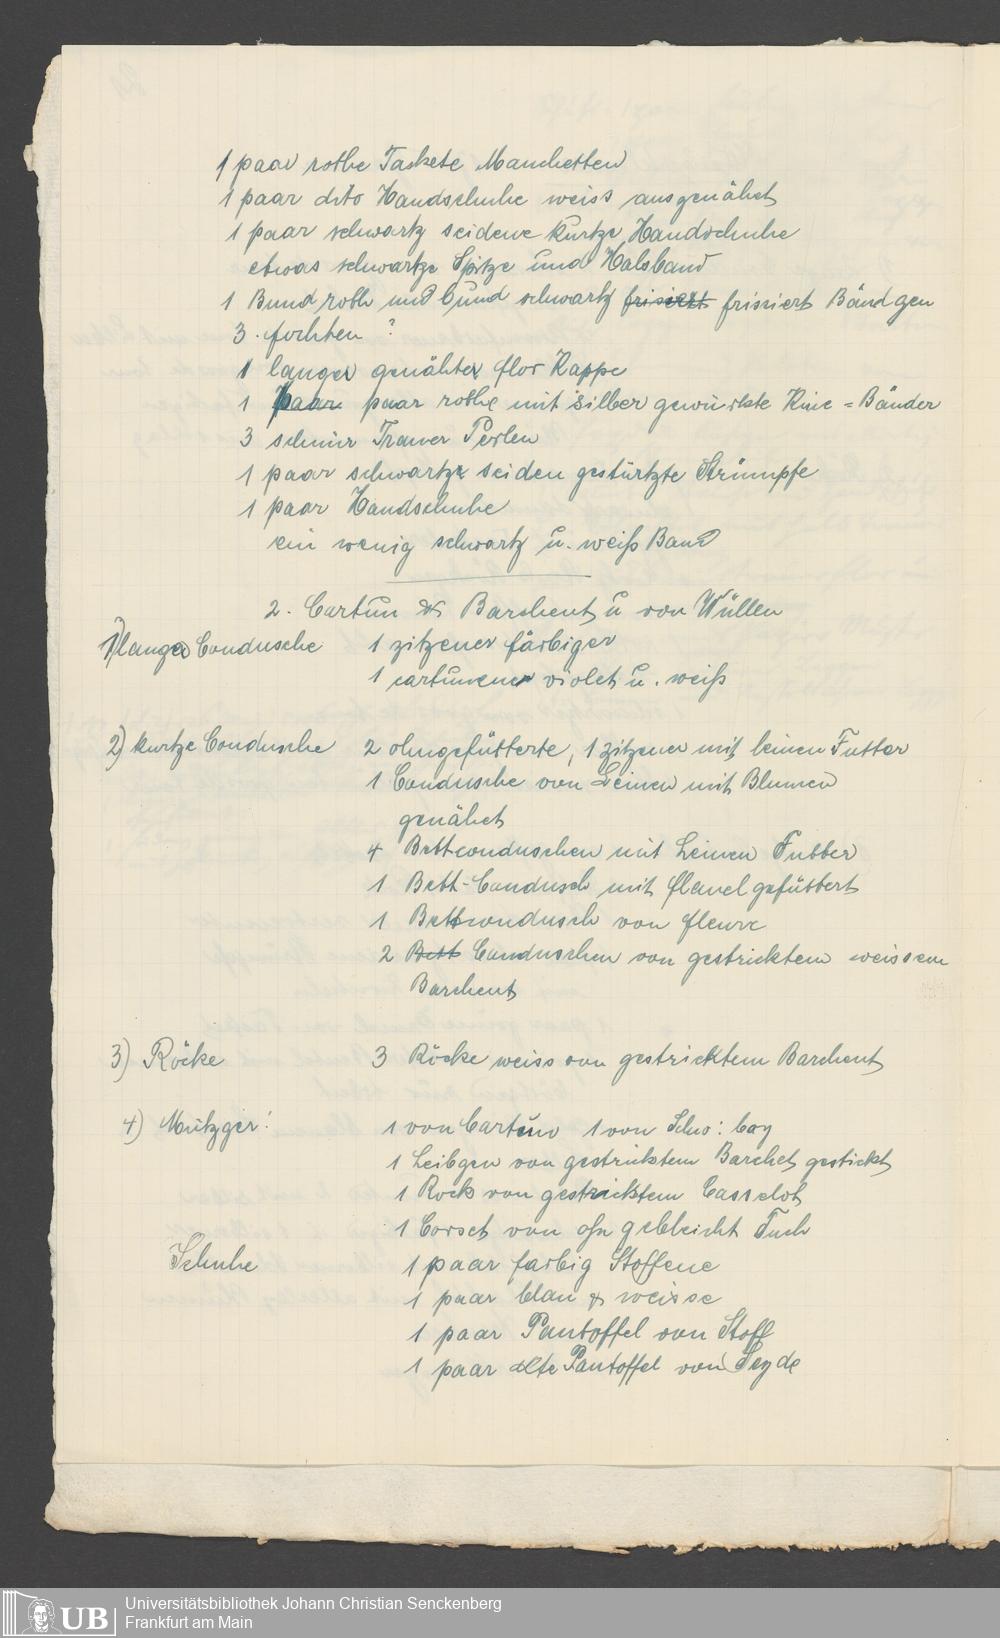 1 paar rothe Taskete Manchetten
1 paar dito Handschuhe weiss ausgenähet
1 paar schwartz seidene kurtze Handschuhe
etwas schwartze Spitze und Halsband
1 Bund roth und bund schwartz frisiert frissiert Bändgen
3. fochten ?
1 langer genähter flor Kappe
1 paar paar rothe mit silber gewürckte Knie = Bänder
3 schnür Trauer Perlen
1 paar schwartze seiden gestürtzte Strümpfe
1 paar Handschuhe
ein wenig schwartz u. weiß Band
2. Cartun & Barchent u von Wüllen
1) lange Condusche 1 zitzener färbiger
1 cartunener violet u. weiß
2) kurtze Condusche 2 ohngefütterte, 1 zitzener mit leinen Futter
1 Condusche von Leinen mit Blumen
genähet
4 Bettconduschen mit Leinen Futter
1 Bett-Condusch mit flanel gefüttert
1 Bettcondusch von fleure
2 Bett Conduschen von gestricktem weissem
Barchent
3) Röcke 3 Röcke weiss von gestricktem Barchent
4) Mutzger! 1 von Cartun 1 von Schw: boy
1 Leibgen von gestricktem Barchet gestickt
1 Rock von gestricktem Casselot
1 Corset von ohn gebleicht Tuch
Schuhe 1 paar farbig Stoffene
1 paar blau & weisse
1 paar Pantoffel von Stoff
1 paar alte Pantoffel von Seyde
Universitätsbibliothek Johann Christian Senckenberg
Frankfurt am Main
UB